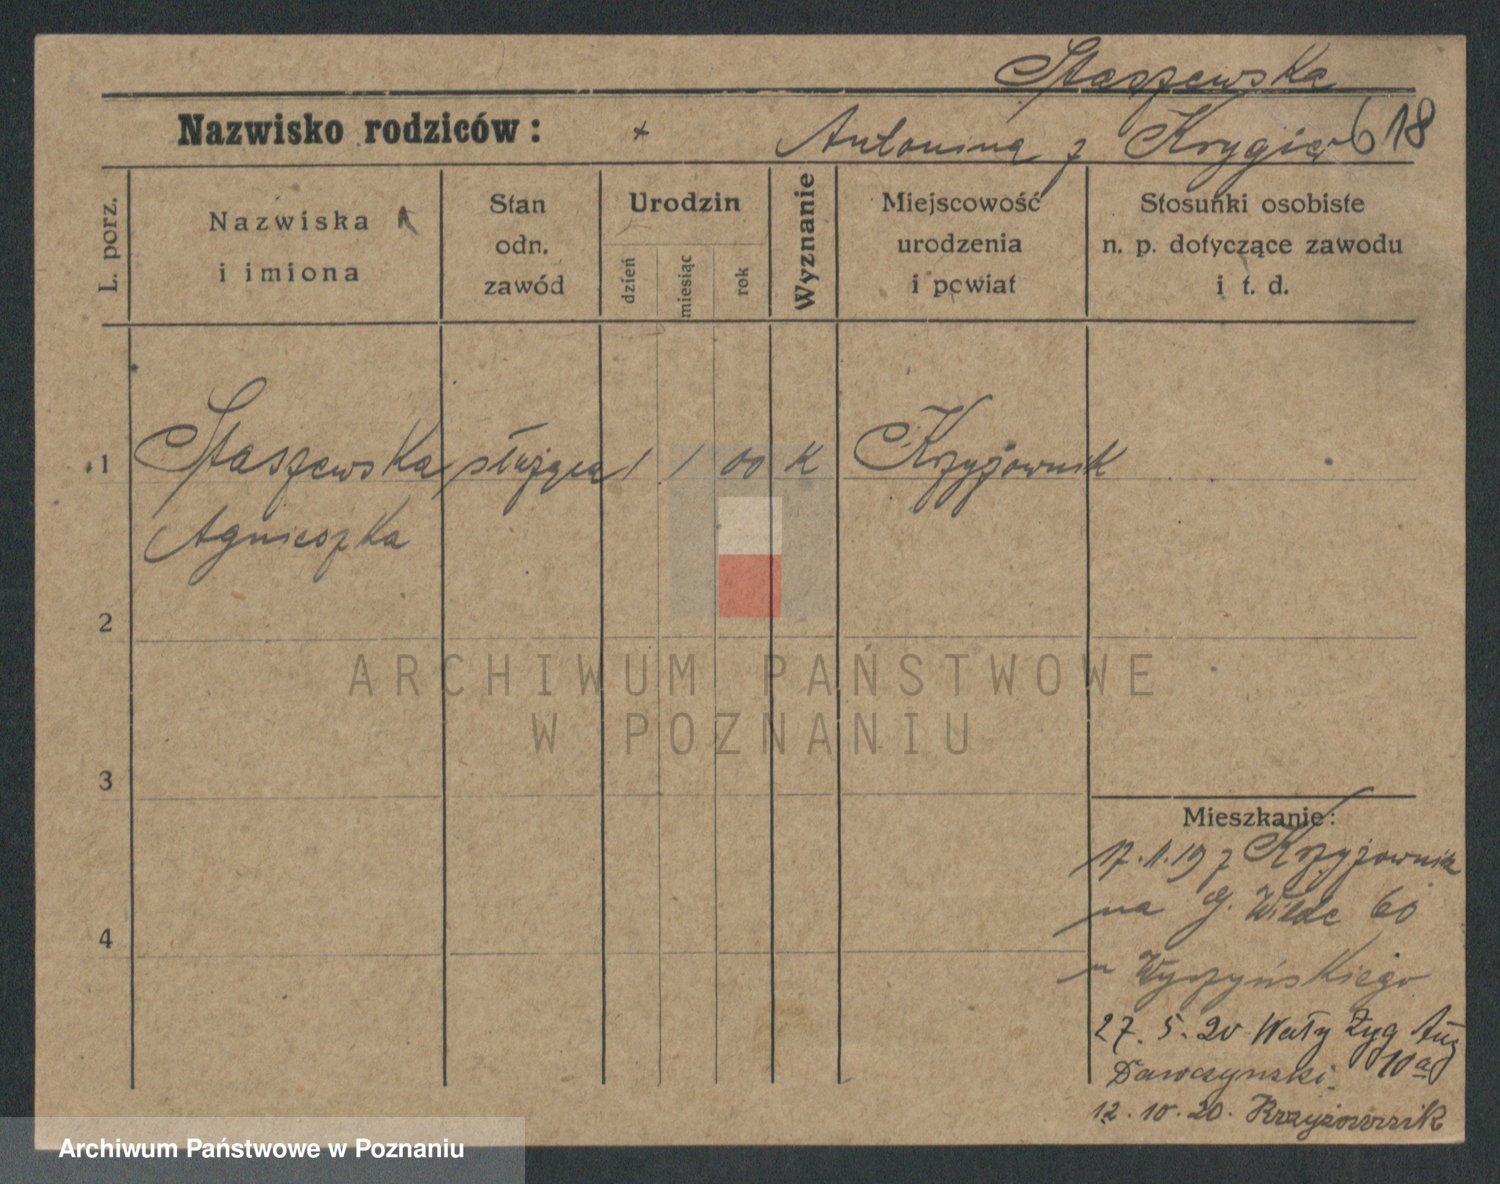 Staszewska
Nazwisko rodziców: + Antonina z Krygier 618
L. porz.
Nazwiska
i imiona
Stan
odn.
zawód
Urodzin
dzień
miesiąc
rok
Wyznanie
Miejscowość
urodzenia
i powiat
Stosunki osobiste
n. p. dotyczące zawodu
i t. d.
1 Staszewska służąca 1 1 00 K Krzyżownik
Agnieszka
2
3
4
ARCHIWUM PAŃSTWOWE
W POZNANIU
Mieszkanie:
17.11.19 z Krzyżownik
na G. Wilde 60
u Wyszyńskiego
27. 5. 20 Wały Zyg Aug
10a
Dawczynski.
12. 10. 20. Krzyżownik
Archiwum Państwowe w Poznaniu